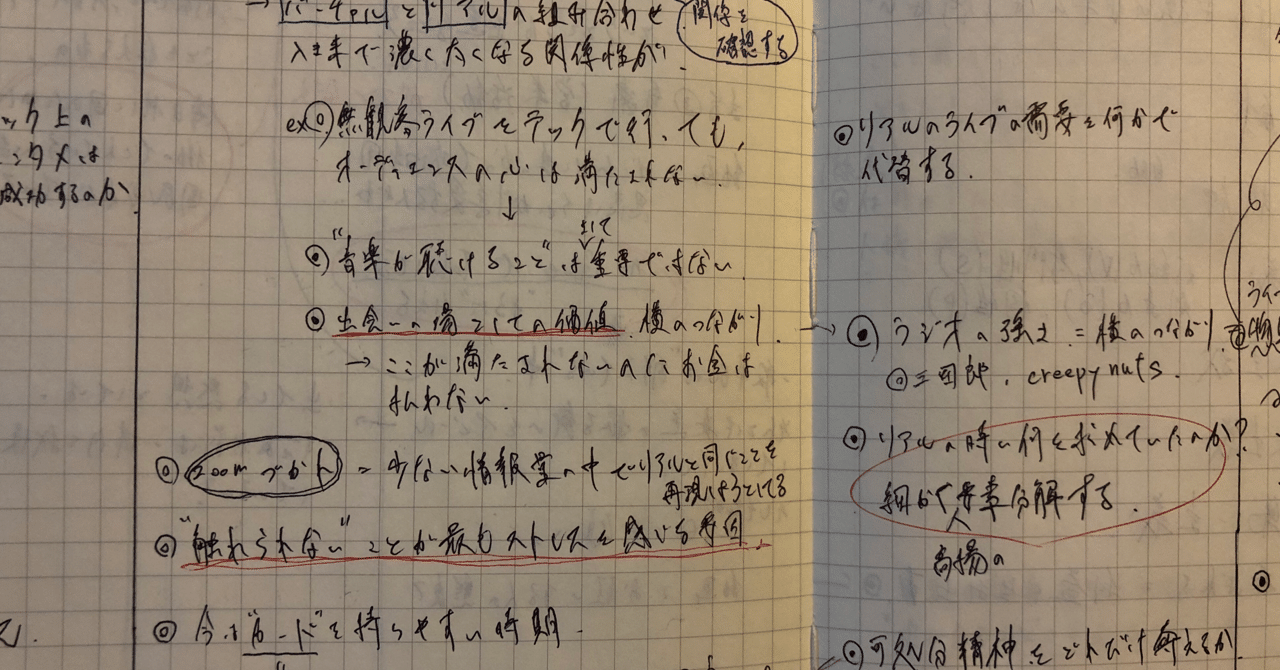 → バーチャル と リアル の組み合わせ
関係を
確認する
入り率で濃く太くなる関係性が
ック上の
ンタメは
成功するのか
ex◎無観客ライブをテックで行っても、
オーディエンスの心は満たされない。
↓
◎“音楽が聴けること”は重要ではない
まして
◎出会いの場としての価値。横のつながり。
→ ここが満たされないのにお金は
払わない。
◎zoomづかれ = 少ない情報量の中でリアルと同じことを
再現しようとしてる
◎“触れられない”ことが最もストレスを感じる要因。
◎今は“ガード”を持ちやすい時期。
◎リアルのライブの需要を何かで
代替する。
→ ◎ラジオの強さ = 横のつながり。
◎三四郎、creepy nuts.
◎リアルの時に何を求めていたのか?
細かく要素分解する。
高揚の
◎可処分精神をどれだけ奪えるか